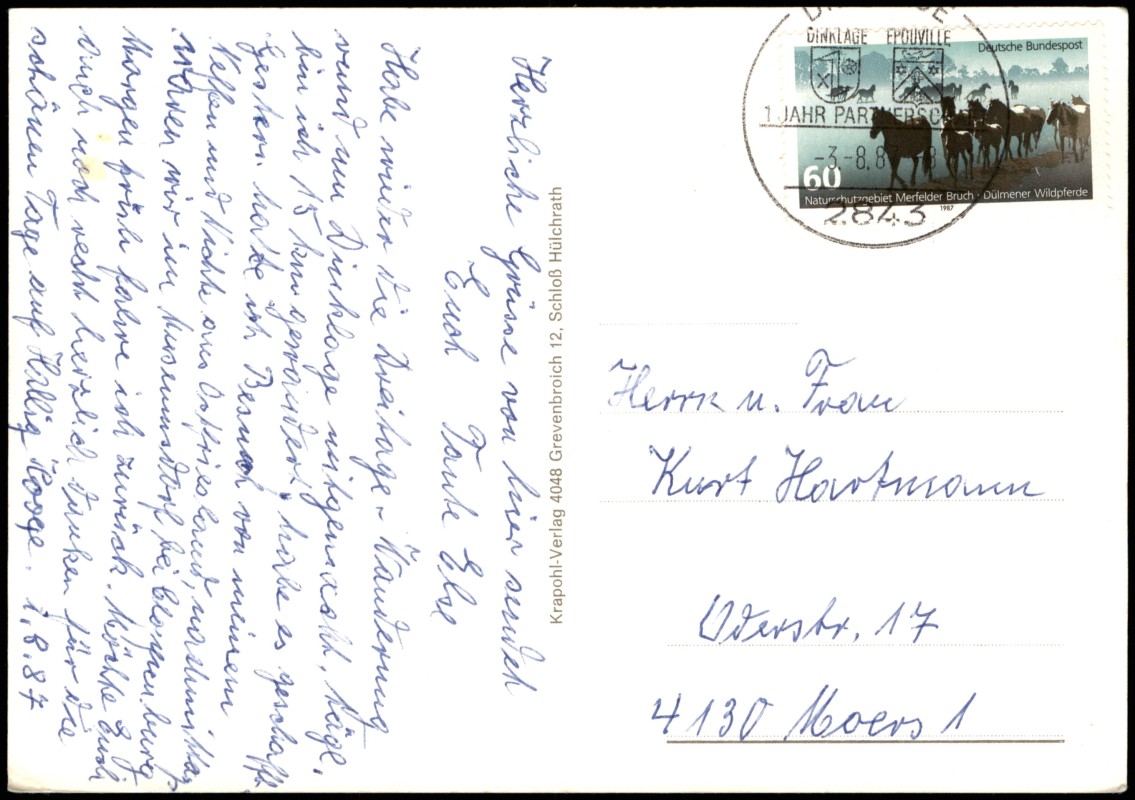 Herzliche Grüsse von hier sendet
Euch Tante Else
Habe wieder die Dreitage-Wanderung
rund um Dinklage mitgemacht,
bin ich 15 km gewandert, habe es geschafft.
gestern hatte ich Besuch von meinem
Neffen und Nichte aus Ostfriesland, nachmittags
waren wir im Museumsdorf bei Cloppenburg
Morgen früh fahre ich zurück. Möchte Euch
auch noch recht herzlich danken für die
schönen Tage auf Hallig Hooge. 1.8.87
Krapohl-Verlag 4048 Grevenbroich 12, Schloß Hülchrath
DINKLAGE EPOUVILLE
1 JAHR
2843
Deutsche Bundespost
60
Naturschutzgebiet Merfelder Bruch · Dülmener Wildpferde
1987
Herrn u. Frau
Kurt Hartmann
Oderstr. 17
4130 Moers 1